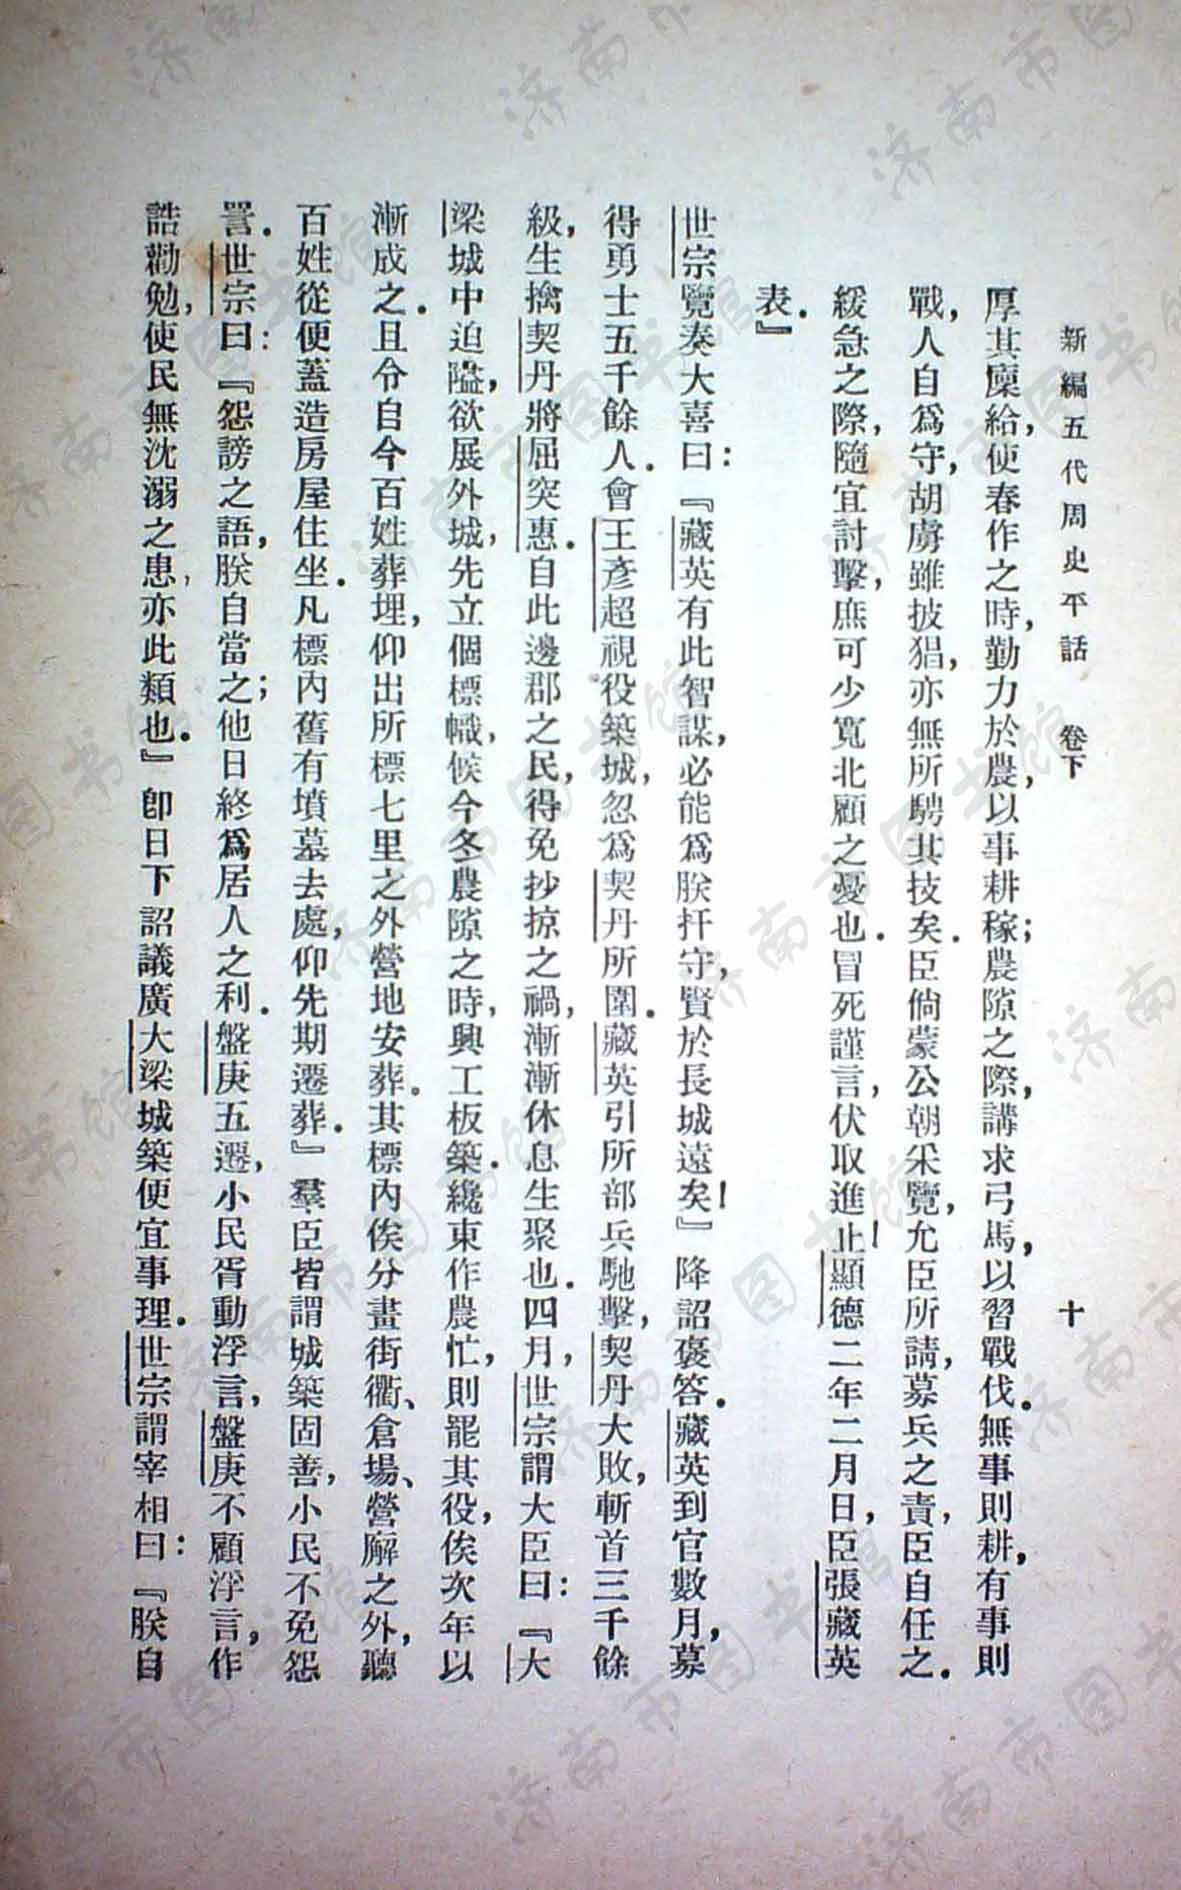 新編五代周史平話　卷下　十
厚其廩給，使春作之時，勤力於農，以事耕稼；農隙之際，講求弓馬，以習戰伐．無事則耕，有事則
戰，人自爲守，胡虜雖披猖，亦無所騁其技矣．臣倘蒙公朝采覽，允臣所請，募兵之責，臣自任之．
緩急之際，隨宜討擊，庶可少寬北顧之憂也．冒死謹言，伏取進止！顯德二年二月日，臣張藏英
表．』
世宗覽奏大喜曰：『藏英有此智謀，必能爲朕扞守，賢於長城遠矣！』降詔褒答．藏英到官數月，募
得勇士五千餘人．會王彥超視役築城，忽爲契丹所圍．藏英引所部兵馳擊，契丹大敗，斬首三千餘
級，生擒契丹將屈突惠．自此邊郡之民，得免抄掠之禍，漸漸休息生聚也．四月，世宗謂大臣曰：『大
梁城中迫隘，欲展外城，先立個標幟，候今冬農隙之時，興工板築．纔東作農忙，則罷其役，俟次年以
漸成之．且令自今百姓葬埋，仰出所標七里之外營地安葬。其標內俟分畫街衢、倉場、營廨之外，聽
百姓從便蓋造房屋住坐．凡標內舊有墳墓去處，仰先期遷葬．』羣臣皆謂城築固善，小民不免怨
詈．世宗曰：『怨謗之語，朕自當之；他日終爲居人之利．盤庚五遷，小民胥動浮言，盤庚不顧浮言，作
誥勸勉，使民無沈溺之患，亦此類也．』卽日下詔議廣大梁城築便宜事理．世宗謂宰相曰：『朕自
济南市图书馆